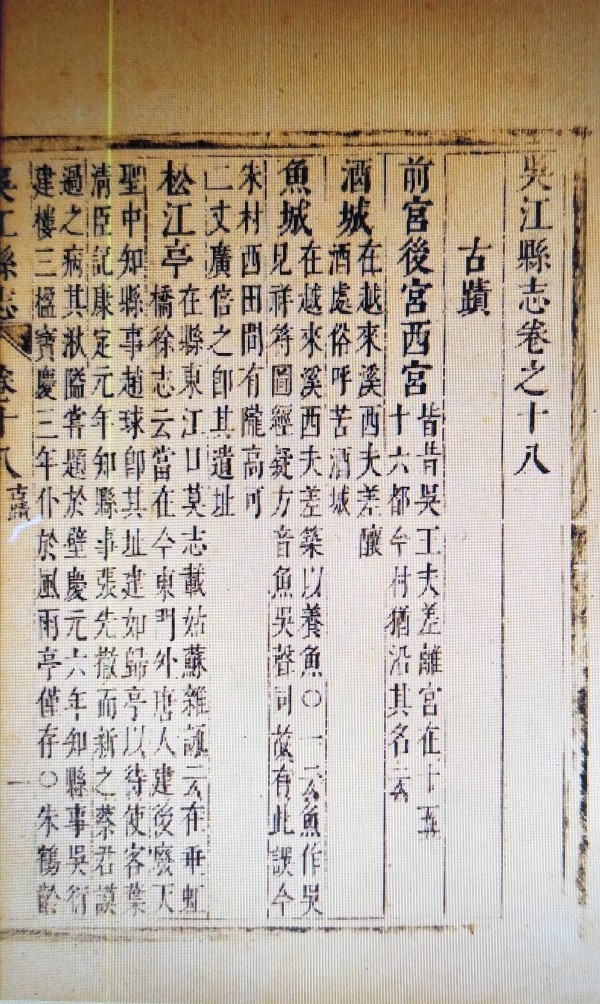 吳江縣志卷之十八
古蹟
前宮後宮西宮皆昔吳王夫差離宮在十五
十六都今村猶沿其名云
酒城在越來溪西夫差釀
酒處俗呼苦酒城
魚城在越來溪西夫差築以養魚○一云魚作吳
見祥符圖經疑方音魚吳聲同故有此誤今
朱村西田間有隴高可
二丈廣倍之卽其遺址
松江亭在縣東江口莫志載姑蘇雜詠云在垂虹
橋徐志云當在今東門外唐人建後廢天
聖中知縣事趙球卽其址建如歸亭以待使客葉
清臣記康定元年知縣事張先撤而新之蔡君謨
過之病其湫隘嘗題於壁慶元六年知縣事吳衍
建樓三楹寶慶三年仆於風雨亭僅存○朱鶴齡
吳江縣志 卷十八 古蹟 一